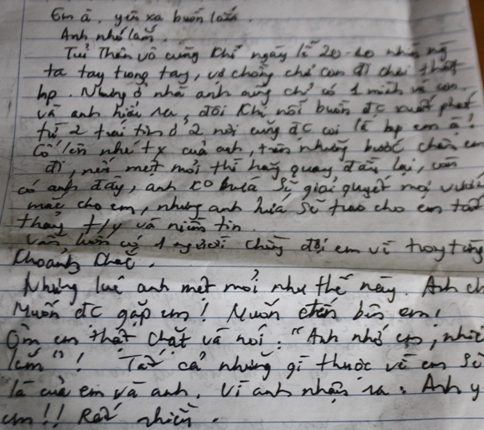 Em à, yêu xa buồn lắm.
Anh nhớ lắm.
Tủi Thân vô cùng khi ngày lễ 20-10 nhìn ng
ta tay trong tay, vợ chồng chở con đi chơi thật
hp. Nhưng ở nhà anh cũng chỉ có 1 mình và con.
và anh hiểu ra, đôi khi nỗi buồn đc xuất phát
từ 2 trái tim ở 2 nơi cũng đc coi là hp em à!
Cố lên nhé tx của anh, trên những bước chân em
đi, nếu mệt mỏi thì hãy quay đầu lại, vẫn
có anh đây, anh ko hứa sẽ giải quyết mọi vướng
mắc cho em, nhưng anh hứa sẽ trao cho em tất
thảy t/y và niềm tin.
vẫn luôn có 1 người chồng đợi em về trong từng
khoảnh khắc.
Những lúc anh mệt mỏi như thế này. Anh ch
Muốn đc gặp em! Muốn đến bên em!
Ôm em thật chặt và nói: "Anh nhớ em, nhiề
lắm"! Tất cả những gì thuộc về em sẽ
là của em và anh. Vì anh nhận ra: Anh y
em!! Rất nhiều.